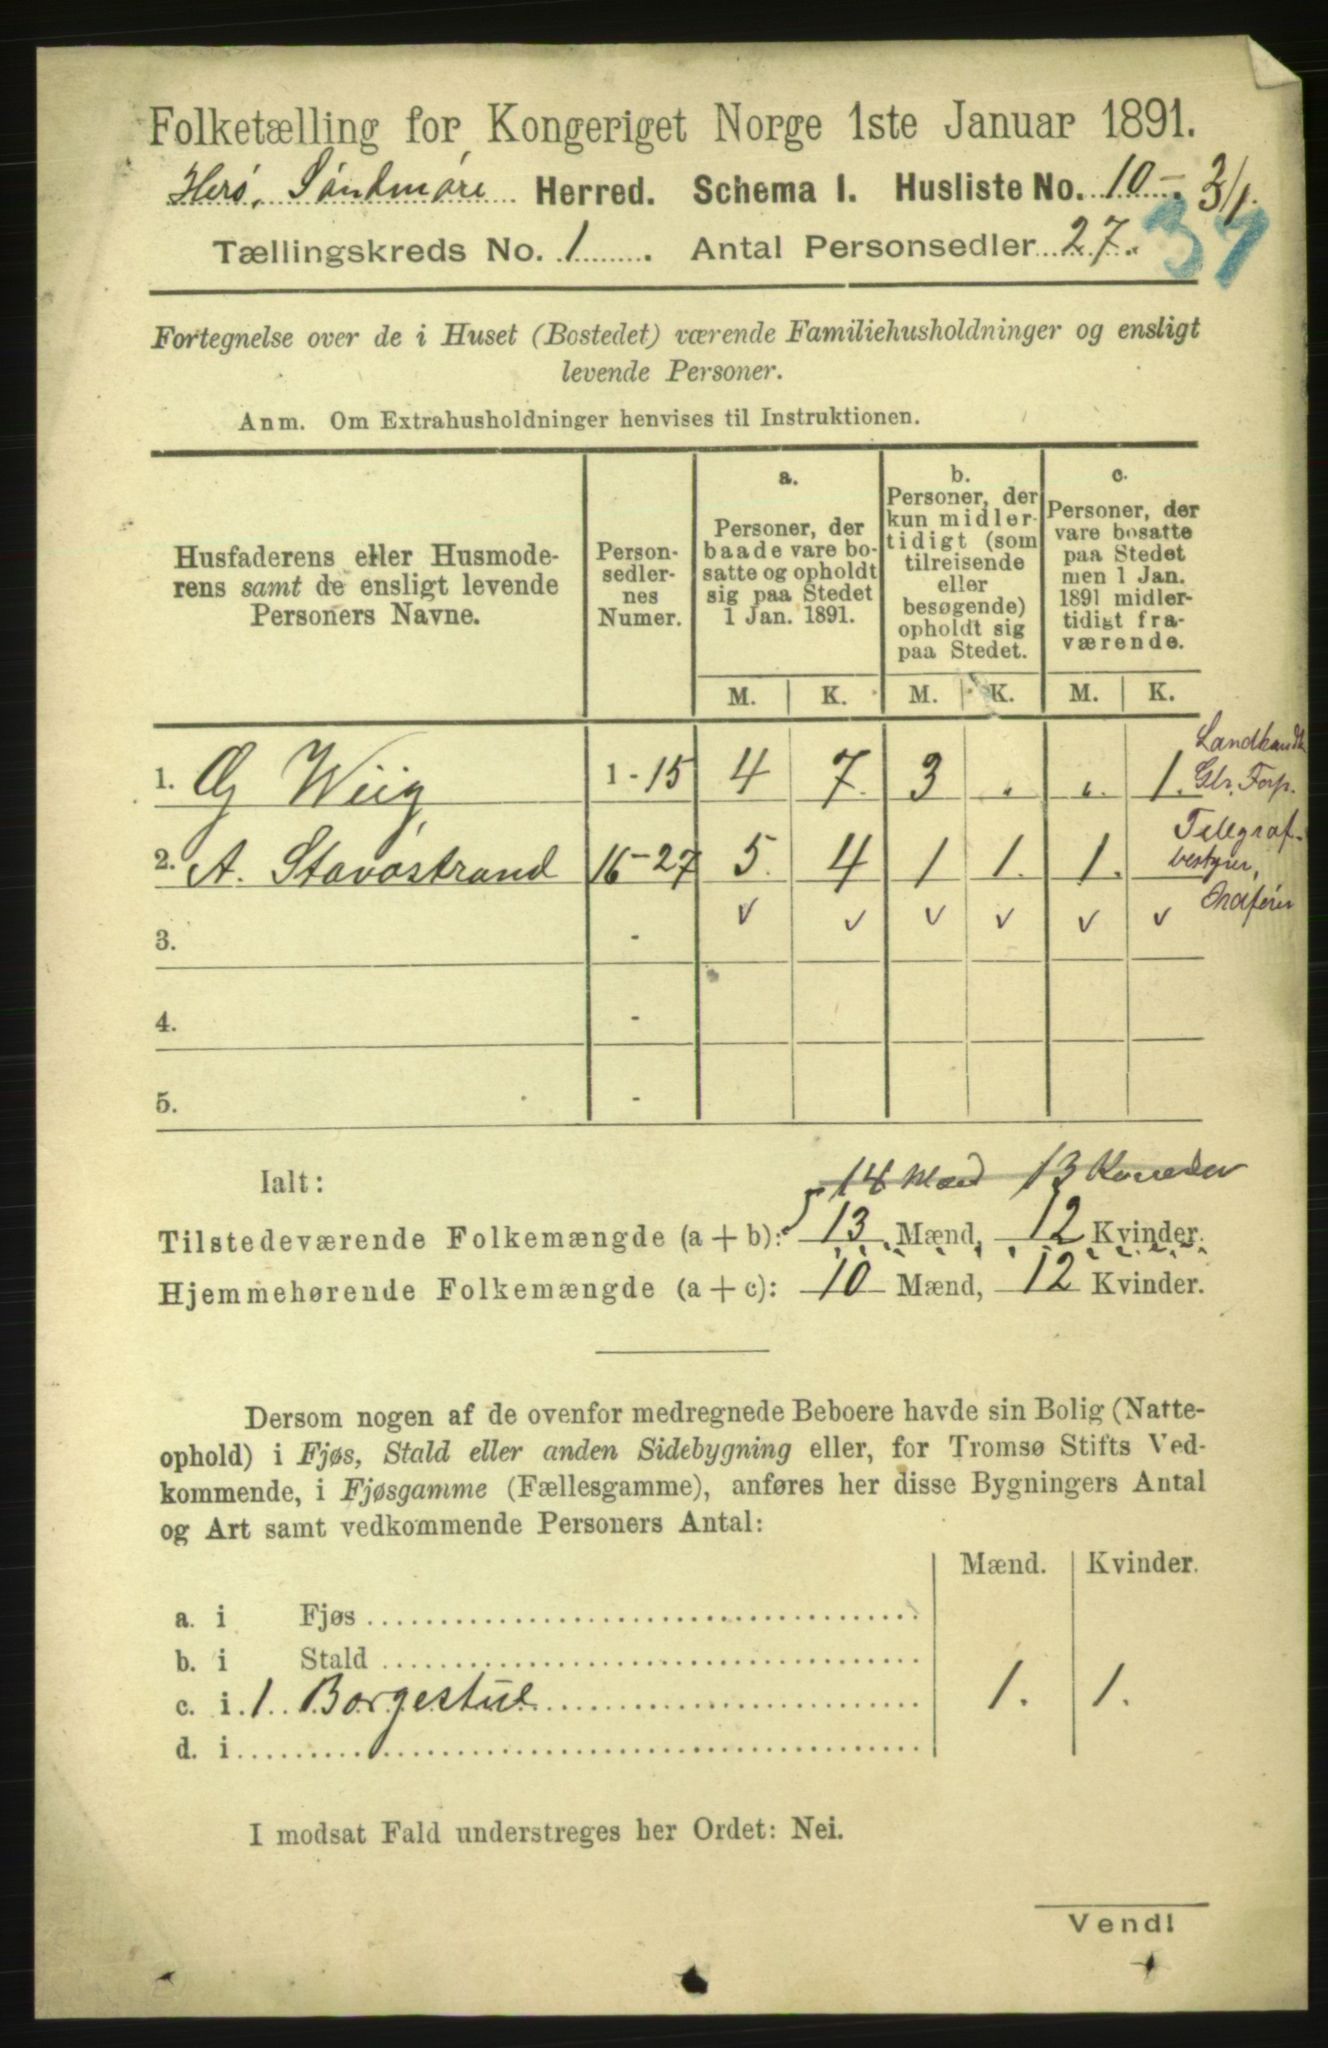 Folketælling for Kongeriget Norge 1ste Januar 1891.
Herø, Søndmøre Herred. Schema I. Husliste No. 10 -. 3/1.
Tællingskreds No. 1 . Antal Personsedler 27.
37
Fortegnelse over de i Huset (Bostedet) værende Familiehusholdninger og ensligt
levende Personer.
Anm. Om Extrahusholdninger henvises til Instruktionen.
Husfaderens eller Husmode-
rens samt de ensligt levende
Personers Navne.
Person-
sedler-
nes
Numer.
a.
Personer, der
baade vare bo-
satte og opholdt
sig paa Stedet
1 Jan. 1891.
b.
Personer, der
kun midler-
tidigt (som
tilreisende
eller
besøgende)
opholdt sig
paa Stedet.
c.
Personer, der
vare bosatte
paa Stedet
men 1 Jan.
1891 midler-
tidigt fra-
værende.
M. K. M. K. M. K.
1. Wiig 1 - 15 4 7. 3 . . 1.
Landhandl.
Gbr. Forp.
2. A. Stavostrand 16 - 27 5. 4 1 1. 1.
Telegraf-
bestyrer,
3. -
4. -
5. -
Ialt:
14 Mænd 13 Kvinder
Tilstedeværende Folkemængde (a + b): 13 Mænd, 12 Kvinder.
Hjemmehørende Folkemængde (a + c): 10 Mænd, 12 Kvinder.
Dersom nogen af de ovenfor medregnede Beboere havde sin Bolig (Natte-
ophold) i Fjøs, Stald eller anden Sidebygning eller, for Tromsø Stifts Ved-
kommende, i Fjøsgamme (Fællesgamme), anføres her disse Bygningers Antal
og Art samt vedkommende Personers Antal:
Mænd. Kvinder.
a. i Fjøs
b. i Stald
c. i 1 Borgestue 1. 1.
d. i
I modsat Fald understreges her Ordet: Nei.
Vend!